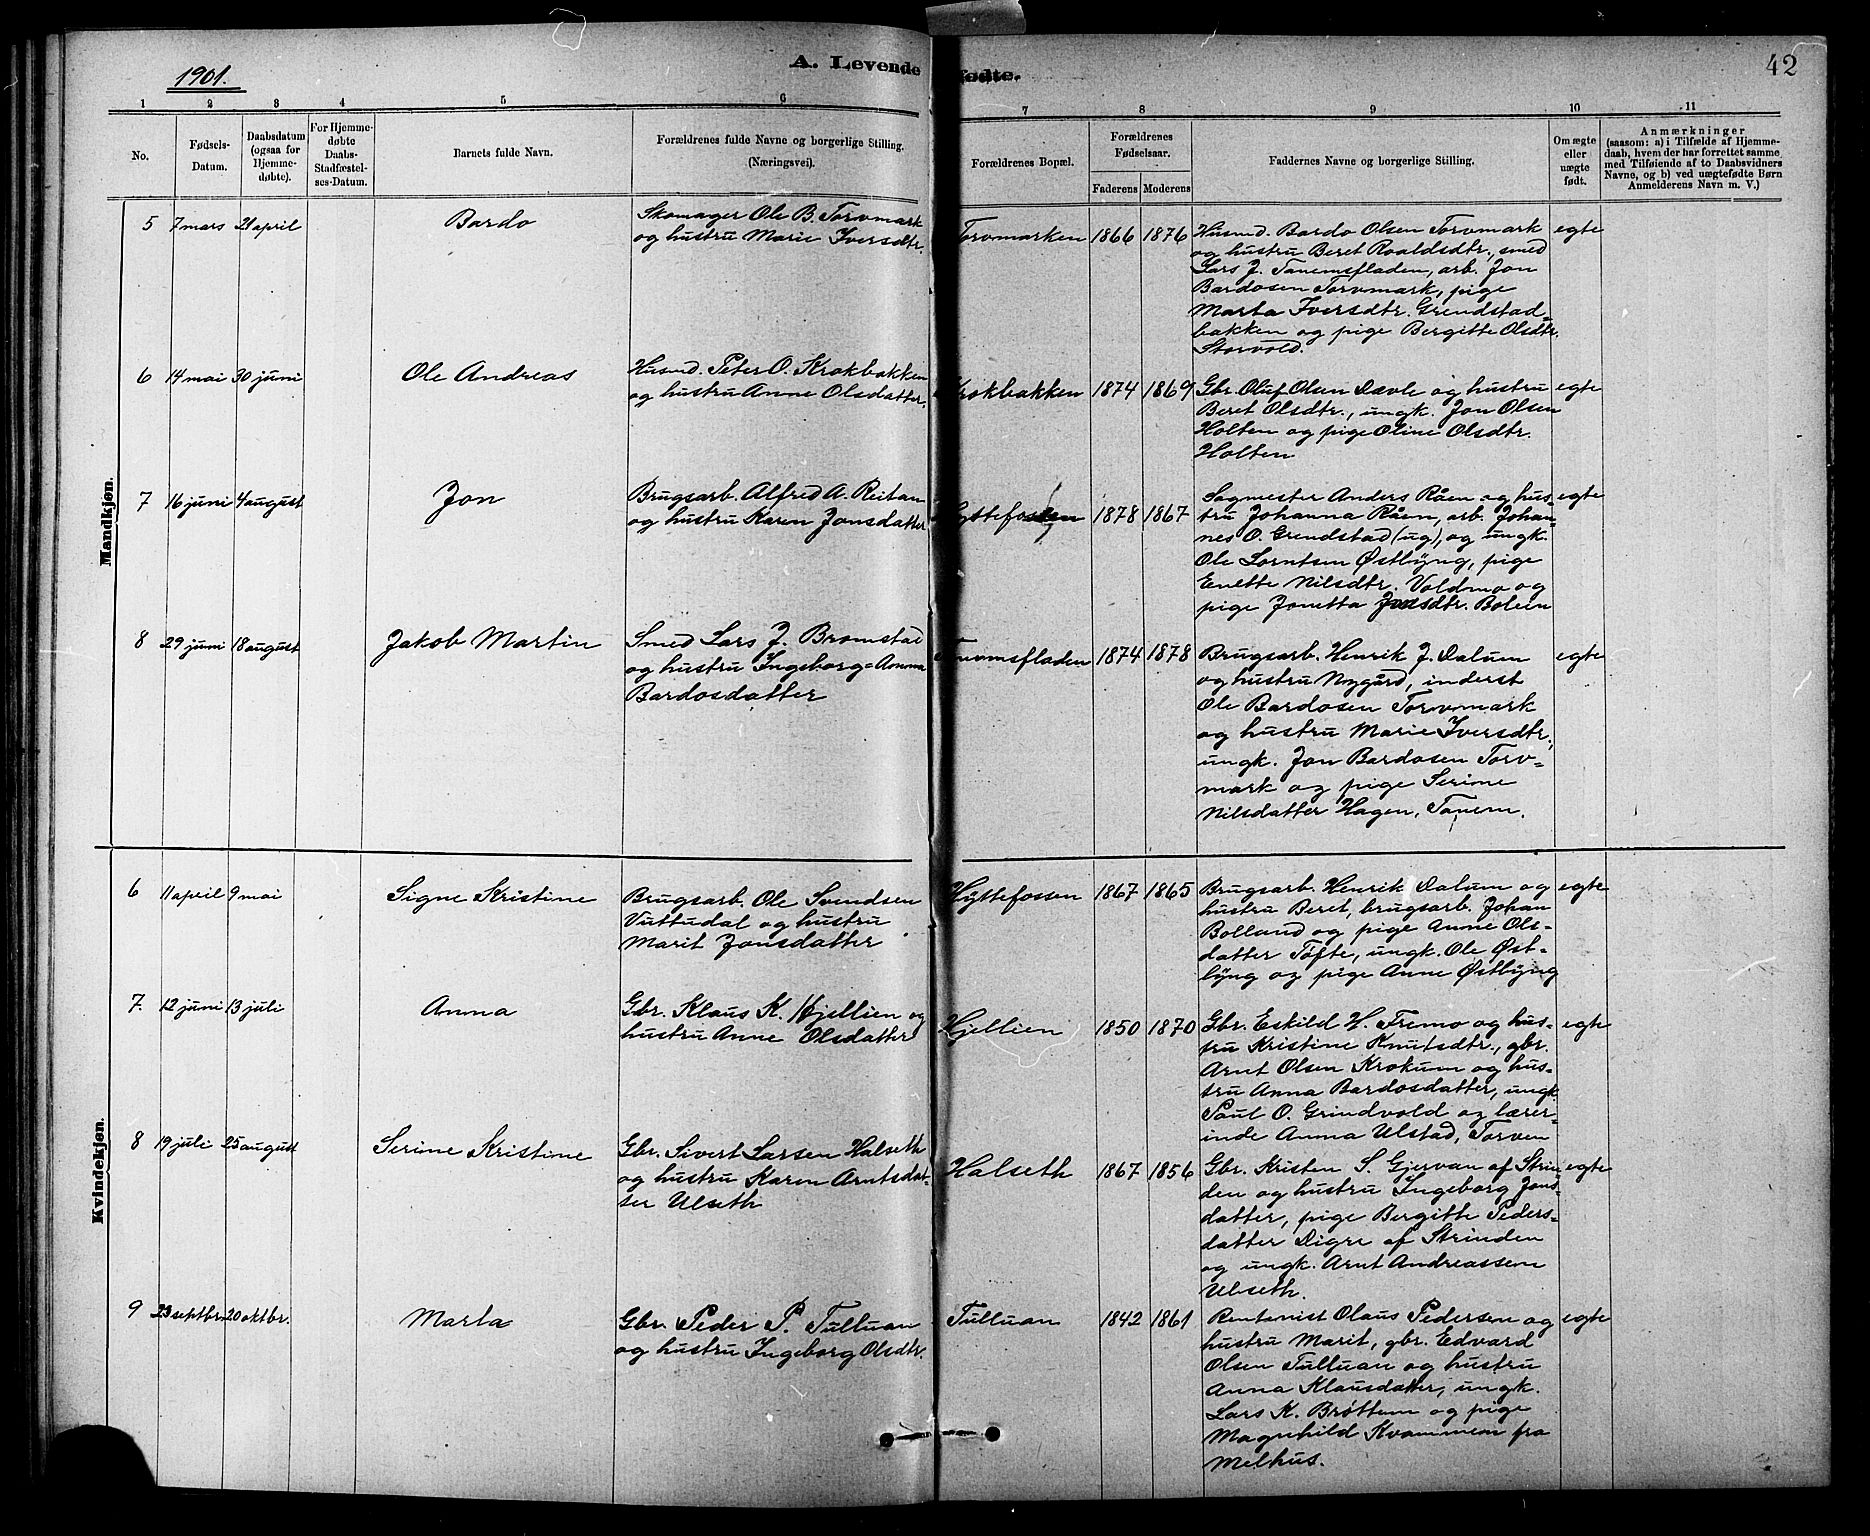 1901.
A. Levende fødte.
42
1
2
3
4
5
6
7
8
9
10
11
No.
Fødsels-
Datum.
Daabsdatum
(ogsaa for
Hjemme-
døbte).
For Hjemme-
døbte
Daabs-
Stadfæstel-
ses-Datum.
Barnets fulde Navn.
Forældrenes fulde Navne og borgerlige Stilling.
(Næringsvei).
Forældrenes Bopæl.
Forældrenes
Fødselsaar.
Faderens
Moderens
Faddernes Navne og borgerlige Stilling.
Om ægte
eller
uægte
født.
Anmærkninger
(saasom: a) i Tilfælde af Hjemme-
daab, hvem der har forrettet samme
med Tilføiende af to Daabsvidners
Navne, og b) ved uægtefødte Børn
Anmelderens Navn m. V.)
Mandkjøn.
5 7 mars 21 april Bardo
Skomager Ole B. Torvmark
og hustru Marie Iversdtr.
Torvmarken 1866 1876
Husmd. Bardo Olsen Torvmark
og hustru Beret Roaldsdtr., smed
Lars J. Tanemsfladen, arb. Jon
Bardosen Torvmark, pige
Marta Iversdtr. Grendstad-
bakken og pige Bergitte Olsdtr.
Storvold.
egte
6 14 mai 30 juni Ole Andreas
Husmd. Peter O. Krokbakken
og hustru Anne Olsdatter.
Krokbakken 1874 1869
Gbr. Oluf Olsen Dævle og hustru
Beret Olsdtr., ungk. Jon Olsen
Holten og pige Oline Olsdtr.
Holten
egte
7 16 juni 4 august Jon
Brugsarb. Alfred A. Reitan
og hustru Karen Jonsdatter
Hyttefossen 1878 1867
Sagmester Anders Råen og hus-
tru Johanna Råen, arb. Johan-
nes O. Grendstad (ug), og ungk.
Ole Lorntsen Østbyng, pige
Enette Nilsdtr. Voldmo og
pige Jonetta Jonsdtr. Bolein
egte
8 29 juni 18 august Jakob Martin
Smed Lars J. Bromstad
og hustru Ingeborg Anna
Bardosdatter
Tanemsfladen 1874 1878
Brugsarb. Henrik J. Dalum
og hustru Nygård, inderst
Ole Bardosen Torvmark
og hustru Marie Iversdtr.,
ungk. Jon Bardosen Torv-
mark og pige Serine
Nilsdatter Hagen, Tanem.
egte
Kvindekjøn.
6 11 april 9 mai Signe Kristine
Brugsarb. Ole Svendsen
Vuttudal og hustru
Marit Jonsdatter
Hyttefossen 1867 1865
Brugsarb. Henrik Dalum og
hustru Beret, brugsarb. Johan
Bolland og pige Anne Ols-
datter Tøfte, ungk. Ole Øst-
lyng og pige Anne Østbyng
egte
7. 12 juni 13 juli Anna
Gbr. Klaus K. Hjellien og
hustru Anne Olsdatter
Hjellien 1850 1870
Gbr. Eskild H. Fremo og hus-
tru Kristine Knutsdtr., gbr.
Arnt Olsen Krokum og hus-
tru Anna Bardosdatter, ungk.
Paul O. Grindvold og lærer-
inde Anna Ulstad, Torven
egte
8 19 juli 25 august Serine Kristine
Gbr. Sivert Larsen Halseth
og hustru Karen Arntsdat-
ter Ulseth
Halseth 1867 1856
Gbr. Kristen S. Gjervan af Strin-
den og hustru Ingeborg Jons-
datter, pige Bergitte Peders-
datter Digre af Strinden
og ungk. Arnt Andreassen
Ulseth.
egte
9 23 septbr. 20 oktbr. Marta
Gbr. Peder P. Tulluan
og hustru Ingeborg Olsdtr.
Tulluan 1842 1861
Rentenist Olaus Pedersen og
hustru Marit, gbr. Edvard
Olsen Tulluan og hustru
Anna Klausdatter, ungk.
Lars K. Brøttem og pige
Magnhild Kvammen fra
Melhus.
egte